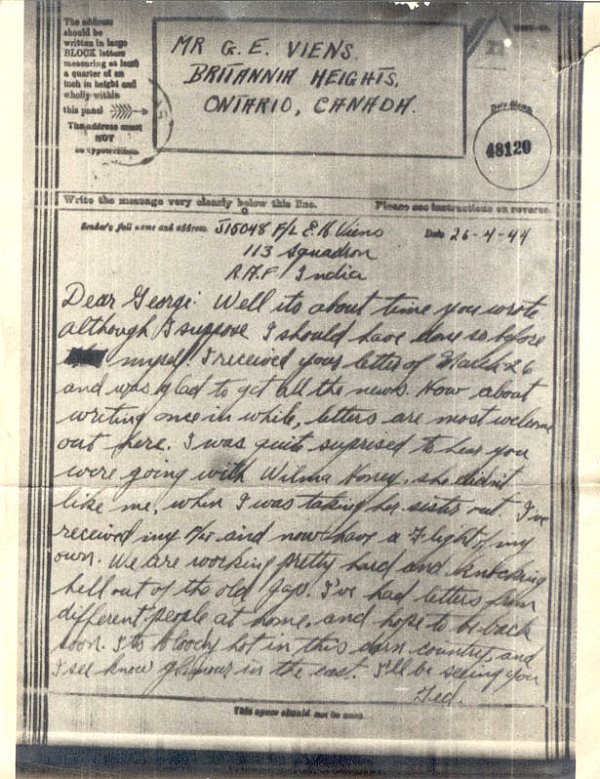 The address
should be
written in large
BLOCK letters
measuring at least
a quarter of an
inch in height and
wholly within
this panel
The address must
NOT
be typewritten
MR G. E. VIENS.
BRITANNIA HEIGHTS,
ONTARIO, CANADA.
Date Stamp
48120
Write the message very clearly below this line.
Please see instructions on reverse.
Sender's full name and address J15048 F/L E. R. Viens
Date 26-4-44
113 Squadron
R.A.F India
Dear George: Well its about time you wrote
although I suppose I should have done so before
myself I received your letter of March 26
and was glad to get all the news. How about
writing once in while, letters are most welcome
out here. I was quite supresed to hear you
were going with Wilma, she didn't
like me, when I was taking her sister out. I've
received my and now have a Flight of my
own. We are working pretty hard and knocking
hell out of the old Jap. I've had letters from
different people at home, and hope to be back
soon. Its bloody hot in this darn country, and
I see know glamour in the east. I'll be seeing you
Ted.
This space should not be used.